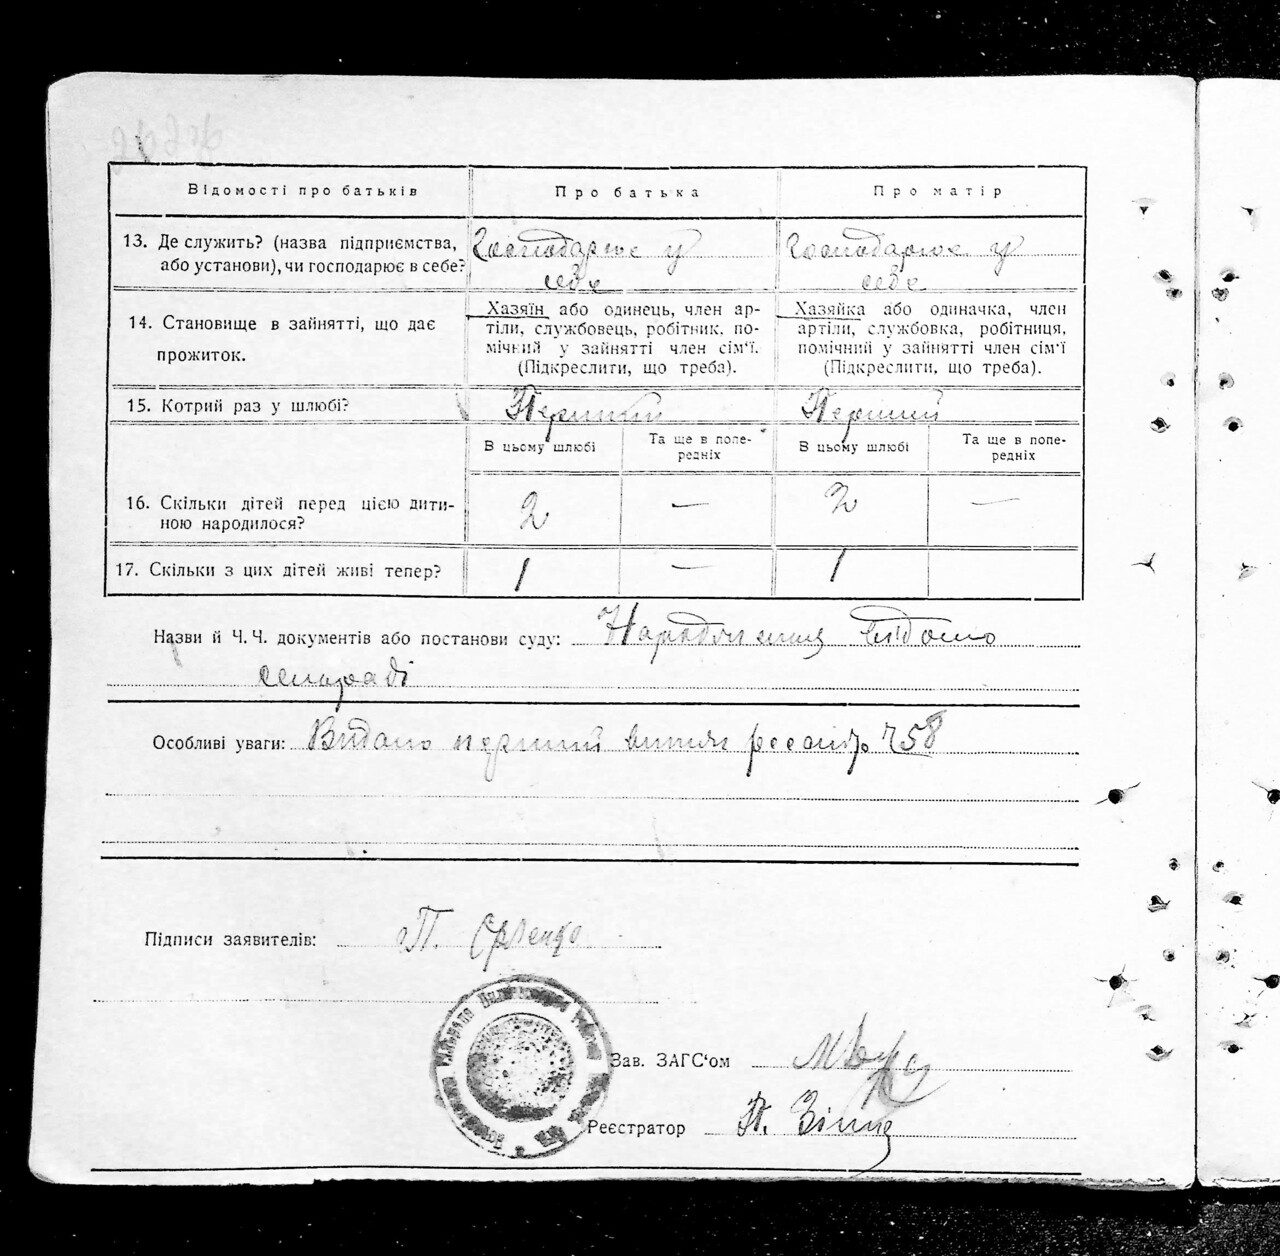 Відомості про батьків
Про батька
Про матір
13. Де служить? (назва підприємства,
або установи), чи господарює в себе?
Господарює у
себе
Господарює у
себе
14. Становище в зайнятті, що дає
прожиток.
Хазяїн або одинець, член ар-
тіли, службовець, робітник, по-
мічний у зайнятті член сім'ї.
(Підкреслити, що треба).
Хазяйка або одиначка, член
артіли, службовка, робітниця,
помічний у зайнятті член сім'ї
(Підкреслити, що треба).
15. Котрий раз у шлюбі?
Перший
Перший
В цьому шлюбі
Та ще в попе-
редніх
В цьому шлюбі
Та ще в попе-
редніх
16. Скільки дітей перед цією дити-
ною народилося?
2
—
2
—
17. Скільки з цих дітей живі тепер?
1
—
1
Назви й Ч. Ч. документів або постанови суду: Народження відомо
сільраді
Особливі уваги: Видано перший витяг 758
Підписи заявителів: П.
Зав. ЗАГС'ом
Реєстратор П.